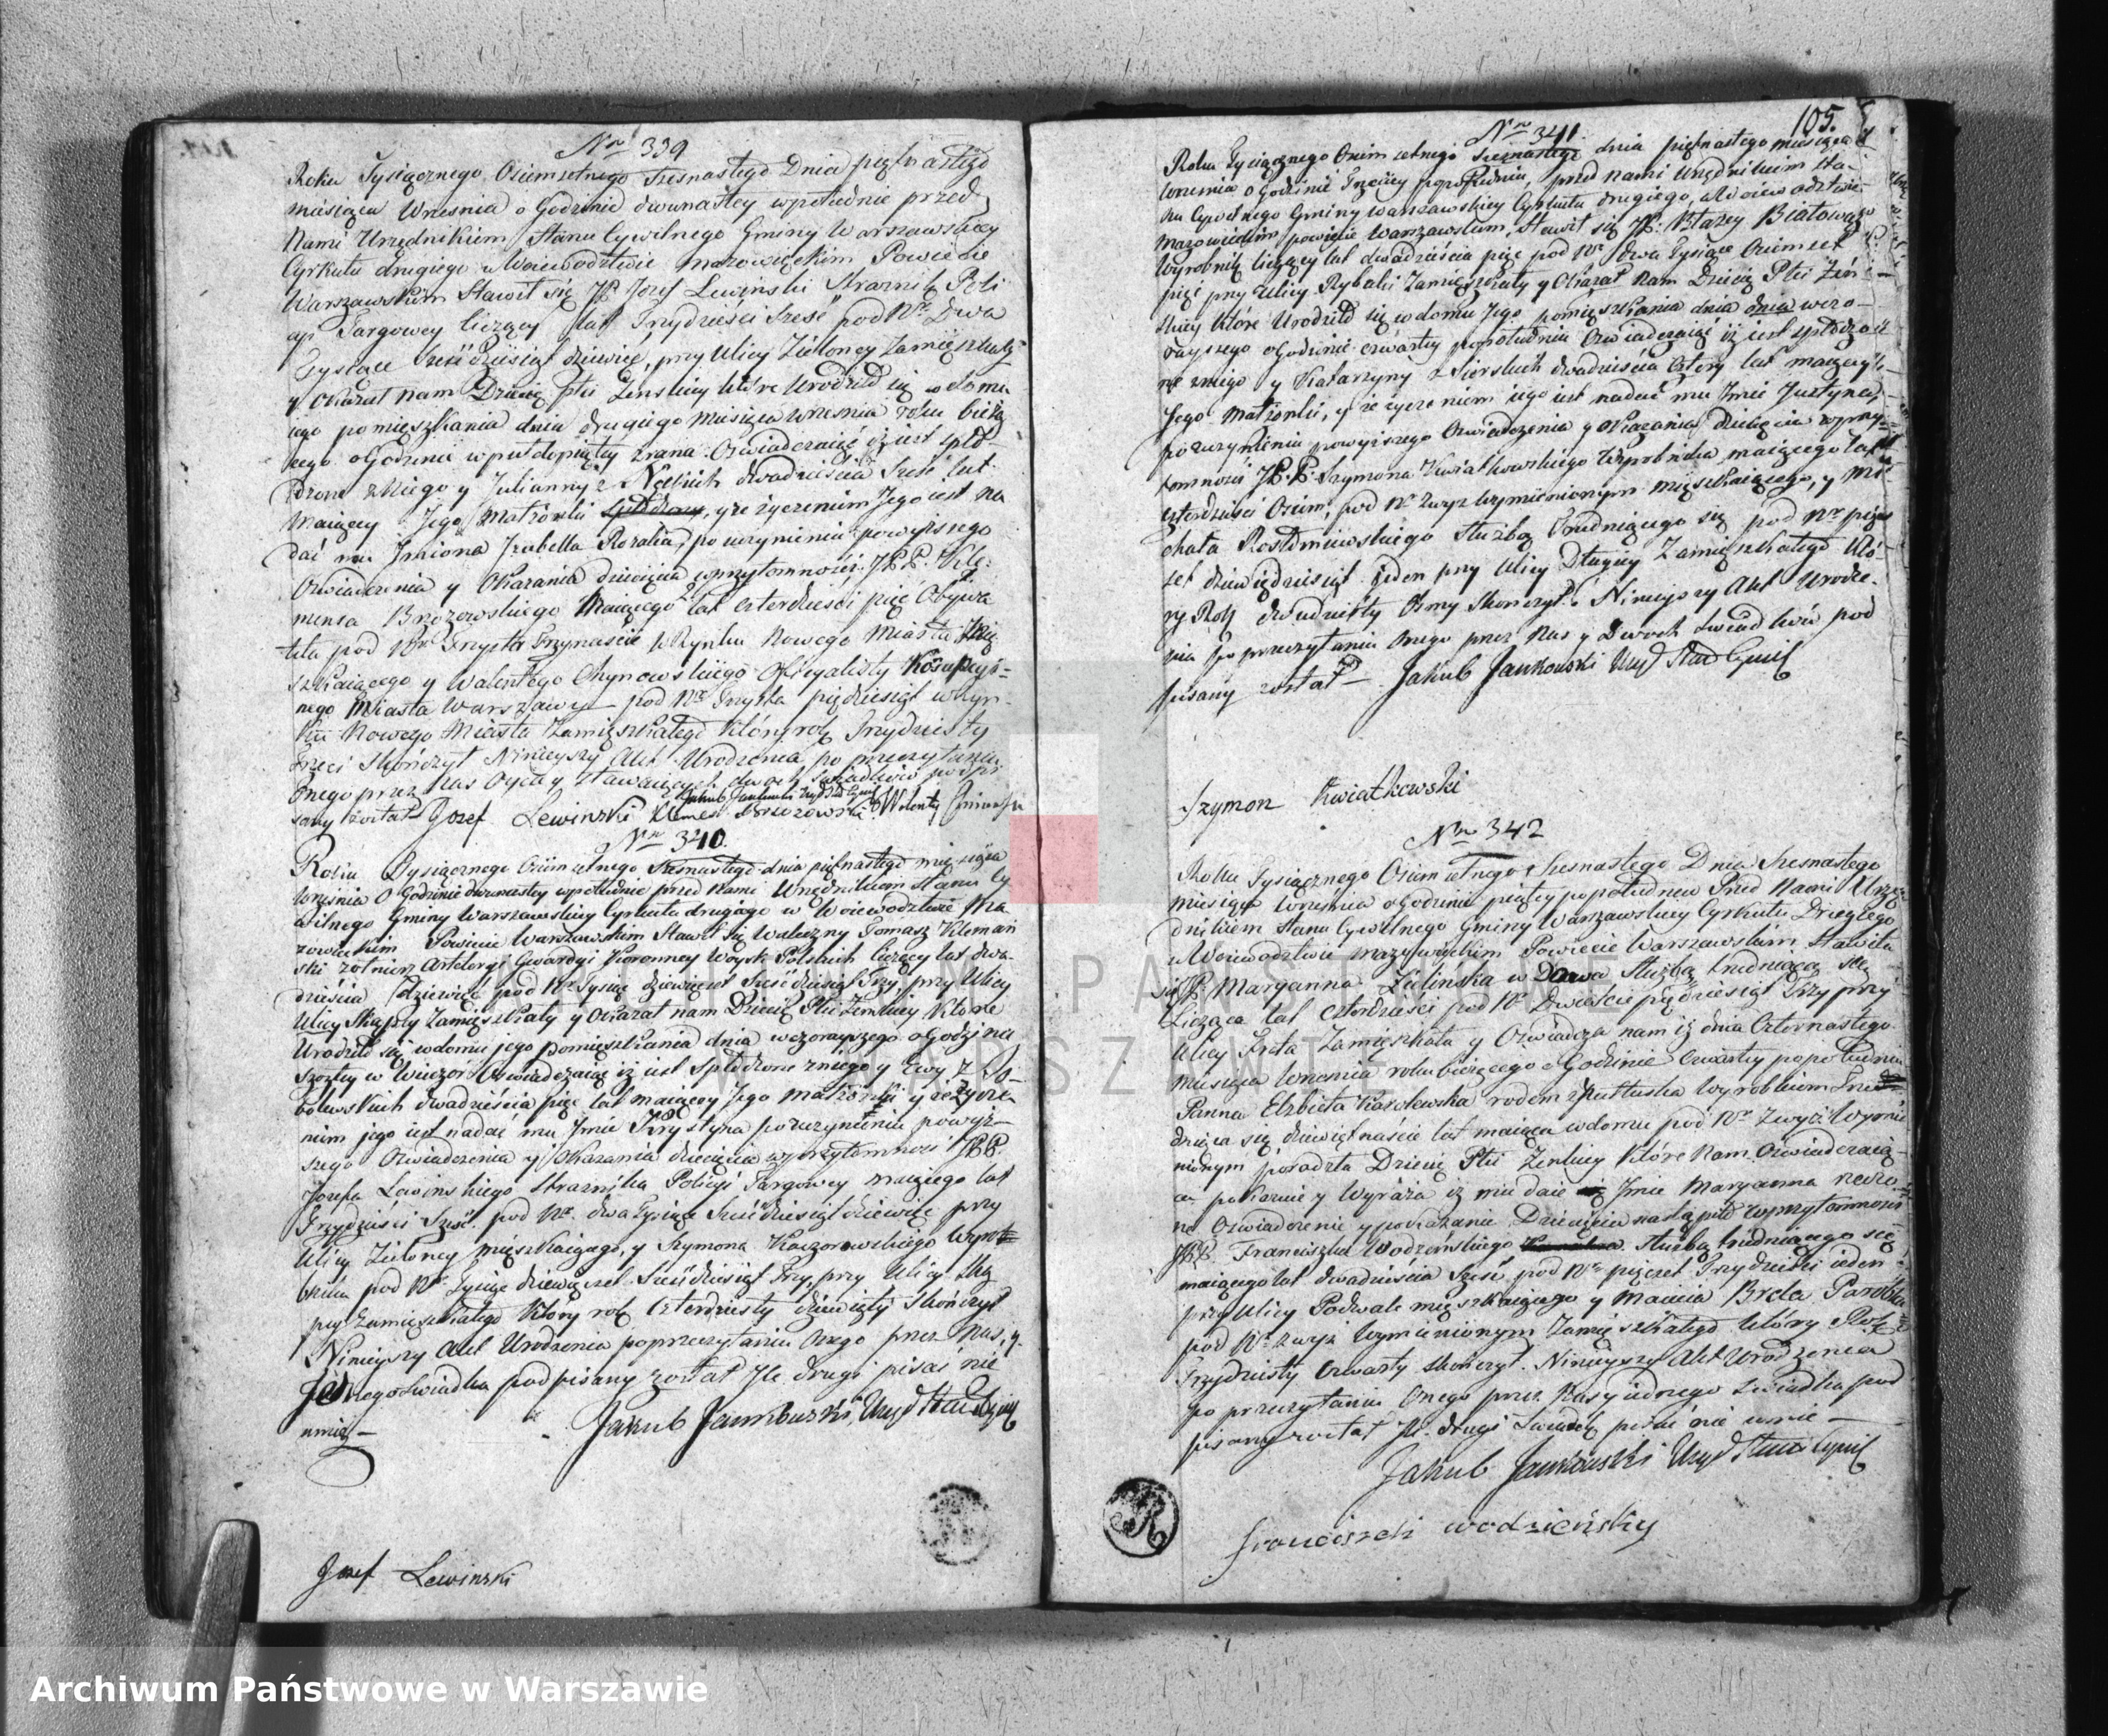 Nro 339
Roku Tysiącznego Osiemsetnego Szesnastego Dnia piętnastego
miesiąca Wrzesnia o Godzinie dwunastey wpołudnie przed
Nami Urzędnikiem Stanu Cywilnego Gminy Warszawskiey
Cyrkułu drugiego w Woiewodztwie Mazowieckim Powiecie
Warszawskim Stawił się JP. Jozef Lewinski Straznik Poli
cyi Targowey liczący lat Trzydzieści Sześć pod Nrem Dwa
Tysiące Sześćdziesiąt dziewięć, przy Ulicy Zieloney Zamięszkały
y okazał nam Dziecię płci Żenskiey które Urodziło się w domu
iego pomięszkania dnia drugiego miesiąca wrzesnia roku bieżą
cego o Godzinie wpułdopiątey zrana. Oswiadczaiąc iż iest spło
dzone z Niego y Julianny z dwadzieścia Sześć lat
maiącey Jego Małżonki y że życzeniem Jego iest na
dać mu Imiona Izabella Rozalia, po uczynieniu powyższego
Oswiadczenia y Okazania dziecięcia wprzytomności JPP. Kle
mensa Brzozowskiego Maiącego lat czterdzieści pięć Obywa
tela pod Nrem Trzysta Trzynaście w Rynku Nowego Miasta Mię
szkaiącego y Walentego Officyalisty
nego Miasta Warszawy pod Nrem Trzysta pięćdziesiąt w Ryn
ku Nowego Miasta Zamięszkałego który rok Trzydziesty
trzeci Skończył Ninieyszy Akt Urodzenia po przeczytaniu
Onego przez Nas Oyca y Stawaiących dwoch Swiadków podpi
sany został Jozef Lewinski Klemens Brzozowski Walenty
Jakub Jankowski Urzęd Stan Cywil
Nro 340.
Roku Tysiącznego Osiemsetnego Szesnastego dnia piętnastego miesiąca
Września O Godzinie dwunastey wpołudnie przed Nami Urzędnikiem Stanu Cy
wilnego Gminy Warszawskiey Cyrkułu drugiego w Woiewodztwie Ma
zowieckim Powiecie Warszawskim Stawił się Waleczny Tomasz Klemań
ski żołnierz Artyleryi Gwardyi Koronney Woysk Polskich liczący lat dwa
dzieścia dziewięć pod Nrem Tysiąc dziewięćset Sześćdziesiąt Trzy, przy Ulicy
Ulicy Zamięszkały y Okazał nam Dziecię Płci Żenskiey Które
Urodziło się w domu jego pomięszkania dnia wczorayszego o Godzinie
Szostey w Wieczor Oswiadczaiąc iż iest Spłodzone z niego y Ewy z So
bolewskich dwadzieścia pięć lat maiącey Jego małżonki y że życze
niem jego iest nadać mu Imie Krystyna po uczynieniu powyż
szego Oswiadczenia y Okazania dziecięcia w przytomności JPP.
Jozefa Lewinskiego Straznika Policyi Targowey maiącego lat
Trzydzieści Sześć pod Nrem dwa Tysiące Sześćdziesiąt dziewięć przy
Ulicy Zieloney mięszkaiącego, y Szymona Kaczorowskiego Wyro
bnika pod Nrem Tysiąc dziewięćset Sześćdziesiąt Trzy, przy Ulicy
Zamięszkałego Który rok Czterdziesty dziewięty Skończył
Ninieyszy Akt Urodzenia poprzeczytaniu Onego przez Nas, y
Jednego Swiadka podpisany został Jle drugi pisać nie
umie
Jakub Jankowski Urzęd Stan Cywil
Jozef Lewinski
105.
Nro 341.
Roku Tysiącznego Osimsetnego Szesnastego dnia piętnastego miesiąca
Wrzesnia o Godzinie Trzeciey popołudniu, przed nami Urzędnikiem Sta
nu Cywilnego Gminy Warszawskiey Cyrkułu drugiego, w Woiewodztwie
Mazowieckim powiecie Warszawskim, Stawił się JP. Błażey
Wyrobnik liczący lat dwadzieścia pięć pod Nrem Dwa Tysiące Osiemset
pięć przy Ulicy Rybaki Zamięszkały y Okazał Nam Dziecię Płci Żen
skiey które Urodziło się w domu Jego pomięszkania dnia wczo
rayszego o Godzinie czwartey popołudniu Oswiadczaiąc iż iest spłodzo
ne z niego y Katarzyny z Sierskich dwadzieścia cztery lat maiącey
Jego małżonki, y że życzeniem iego iest nadać mu Imie Justyna,
po uczynieniu powyższego Oswiadczenia y okazania dziecięcia w przy
tomności JP.P. Szymona Kwiatkowskiego Wyrobnika maiącego lat
czterdzieści Osim, pod Nr zwyż Wymienionym mięszkaiącego, y Mi
chała Służbą Trudniącego się pod Nrem pięć
set dziewięćdziesiąt ieden przy Ulicy Długiey Zamięszkałego Któ
ry Rok dwudziesty Osmy Skończył. Ninieyszy Akt Urodze
nia po przeczytaniu Onego przez Nas y Dwoch Swiadków pod
pisany został Jakub Jankowski Urzęd Stan Cywil
Szymon Kwiatkowski
Nro 342
Roku Tysiącznego Osiemsetnego Szesnastego Dnia Szesnastego
miesiąca Wrzesnia o Godzinie piątey popołudniu Przed Nami Urzę
dnikiem Stanu Cywilnego Gminy Warszawskiey Cyrkułu Drugiego
w Woiewodztwie Mazowieckim Powiecie Warszawskim Stawiła
się JP. Maryanna Zielinska wDowa Służbą trudniąca się
Licząca lat Czterdzieści pod Nrem Dwieście pięćdziesiąt Trzy przy
Ulicy Freta Zamięszkała y Oswiadcza nam iż dnia Czternastego
miesiąca Wrzesnia roku bieżącego o Godzinie Czwartey popołudniu
Panna Elzbieta Karolewska rodem z Pułtuska Wyrobkiem Tru
dniąca się dziewiętnaście lat maiąca w domu pod Nrem Zwyż Wymie
nionym porodziła Dziecię Płci Żenskiey które Nam Oswiadczaią
ca pokazuie y Wyraża iż mu daie Imie Maryanna
Oswiadczenie y pokazanie Dziecięcia nastąpiło w przytomności
JPP. Franciszka Wodzińskiego Służbą trudniącego się
maiącego lat dwadzieścia Sześć pod Nrem pięćset Trzydzieści ieden
przy Ulicy Podwale mięszkaiącego y Macieia Parobka
pod Nr zwyż Wymienionym Zamięszkałego który Rok
Trzydziesty Czwarty skończył. Ninieyszy Akt Urodzenia
po przeczytaniu Onego przez Nas y iednego Swiadka pod
pisany został Jle drugi Swiadek pisać nie umie
Jakub Jankowski Urzęd Stan Cywil
Franciszek wodzieński
ARCHIWUM PAŃSTWOWE
W WARSZAWIE
Archiwum Państwowe w Warszawie